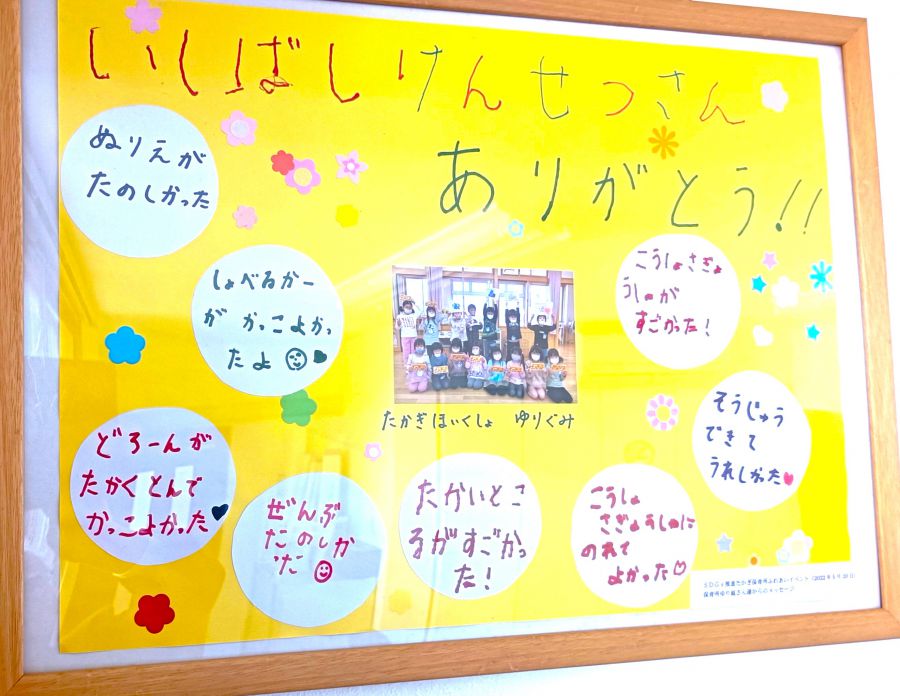 いしばしけんせつさん
ありがとう!!
ぬりえが
たのしかった
しょべるかー
が かっこよかっ
たよ
こうしょさぎょ
うしゃが
すごかった!
たかぎほいくしょ ゆりぐみ
そうじゅう
できて
うれしかった
どろーんが
たかくとんで
かっこよかった
ぜんぶ
たのしか
った
たかいとこ
ろがすごかっ
た!
こうしょ
さぎょうしゃに
のれて
よかった
SDGs推進たかぎ保育所ふれあいイベント
保育所ゆり組さん達からのメッセージ